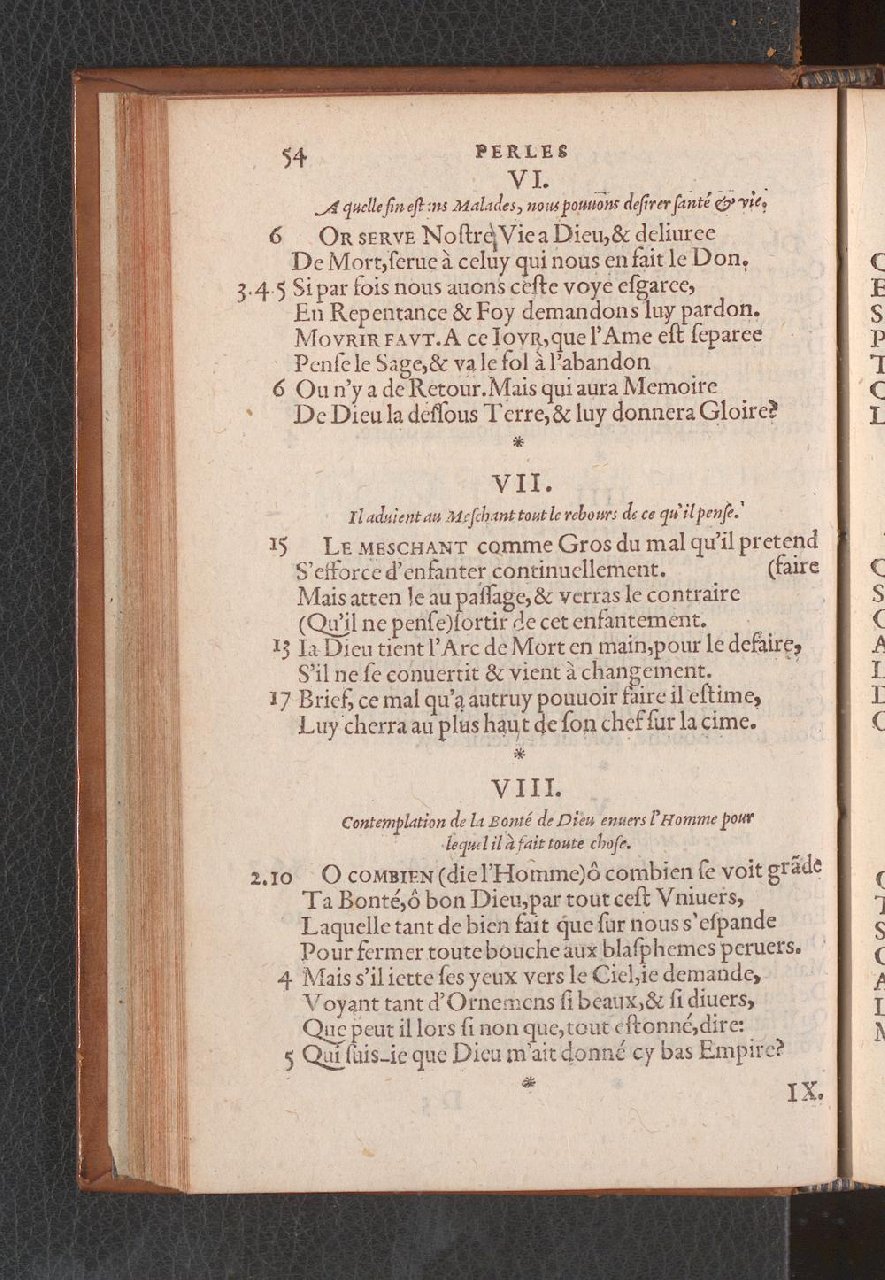 54 PERLES
VI.
A quelle fin estans Malades, nous pouuons desirer santé & vie.
6 OR SERVE Nostre Vie a Dieu, & deliuree
De Mort, serue à celuy qui nous en fait le Don.
3.4.5 Si par fois nous auons ceste voye esgaree,
En Repentance & Foy demandons luy pardon.
MOVRIR FAVT. A ce IOVR, que l'Ame est separee
Pense le Sage, & va le fol à l'abandon
6 Ou n'y a de Retour. Mais qui aura Memoire
De Dieu la dessous Terre, & luy donnera Gloire?
*
VII.
Il aduient au Meschant tout le rebours de ce qu'il pense.
15 LE MESCHANT comme Gros du mal qu'il pretend
S'efforce d'enfanter continuellement. (faire
Mais atten le au passage, & verras le contraire
(Qu'il ne pense) sortir de cet enfantement.
13 Ia Dieu tient l'Arc de Mort en main, pour le defaire,
S'il ne se conuertit & vient à changement.
17 Brief, ce mal qu'a autruy pouuoir faire il estime,
Luy cherra au plus haut de son chef sur la cime.
*
VIII.
Contemplation de la Bonté de Dieu enuers l'Homme pour
lequel il à fait toute chose.
2.10 O COMBIEN (die l'Homme) ô combien se voit grãde
Ta Bonté, ô bon Dieu, par tout cest Vniuers,
Laquelle tant de bien fait que sur nous s'espande
Pour fermer toute bouche aux blasphemes peruers.
4 Mais s'il iette ses yeux vers le Ciel, ie demande,
Voyant tant d'Ornemens si beaux, & si diuers,
Que peut il lors si non que, tout estonné, dire:
5 Qui suis-ie que Dieu m'ait donné cy bas Empire?
*
IX.